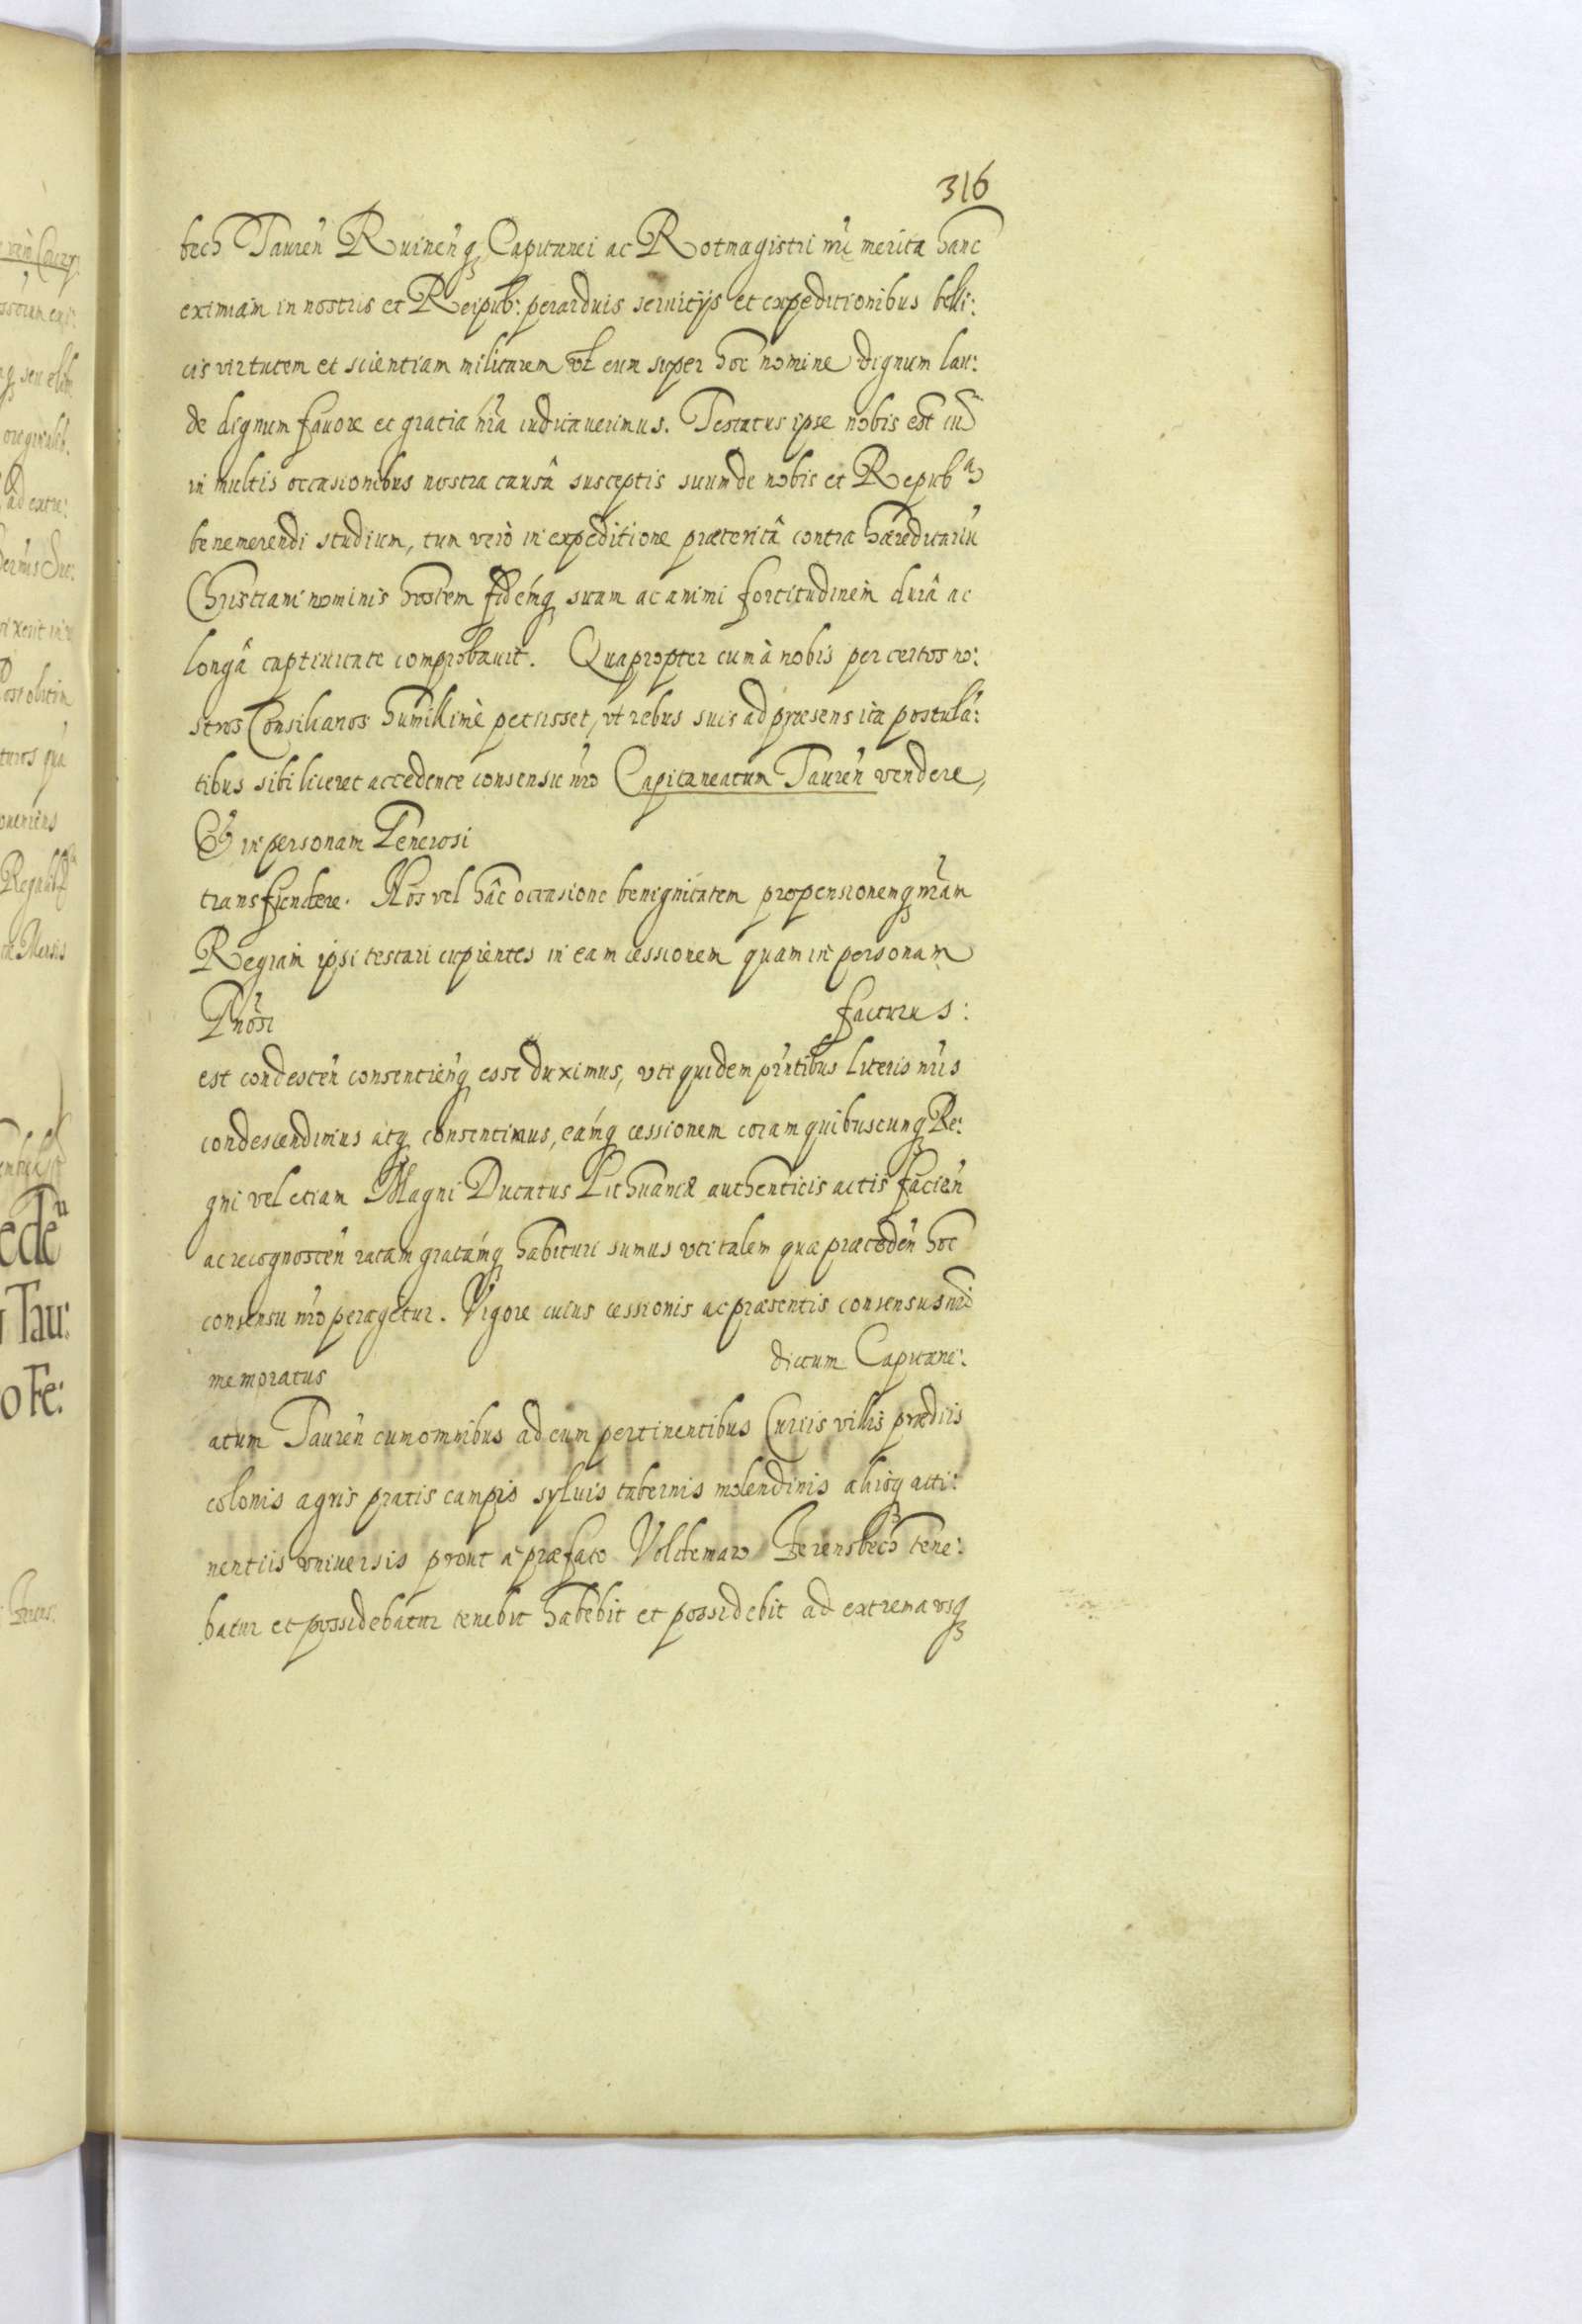 316
bech Tauren̄ Ruinen̄q₃ Capitanei ac Rotmagistri nr̄i merita hanc
eximiam in nostris et Reipub: perarduis seruitijs et expeditionibus belli:
cis virtutem et scientiam militarem vt eum super hoc nomine dignum lau:
de dignum fauore et gratia nr̄a iudicauerimus. Testatus ipse nobis est cū
in multis occasionibus nostra causâ susceptis suum de nobis et Repubᵃ
benemerendi studium, tum verò in expeditione præteritâ contra hæreditariū
Christiani nominis hostem fidémq₃ suam ac animi fortitudinem durâ ac
longâ captiuitate comprobauit. Quapropter cum à nobis per certos no:
stros Consiliarios humillimè petiisset, vt rebus suis ad præsens ita postulā:
tibus sibi liceret accedente consensu nr̄o Capitaneatum Tauren̄ vendere,
Et in personam Generosi
transfundere. Nos vel hâc occasione benignitatem propensionemq₃ nr̄am
Regiam ipsi testari cupientes in eam cessionem quam in personam
Gnōsi facturus:
est condescen̄ consentien̄q₃ esse duximus, vti quidem pn̄tibus literis nr̄is
condescendimus atq₃ consentimus, eámq₃ cessionem coram quibuscunq₃ Re:
gni vel etiam Magni Ducatus Lithuaniæ authenticis actis facien̄
ac recognoscen̄ ratam gratámq₃ habituri sumus vti talem quæ præceden̄ hoc
consensu nr̄o peragetur. Vigore cuius cessionis ac præsentis consensus nr̄i
memoratus dictum Capitane:
atum Tauren̄ cum omnibus ad eum pertinentibus Curiis villis prædiis
colonis agris pratis campis syluis tabernis molendinis aliisq₃ atti:
nentiis vniuersis prout a præfato Voldemaro Ferensbech tene:
batur et possidebatur tenebit habebit et possidebit ad extrema vsq₃